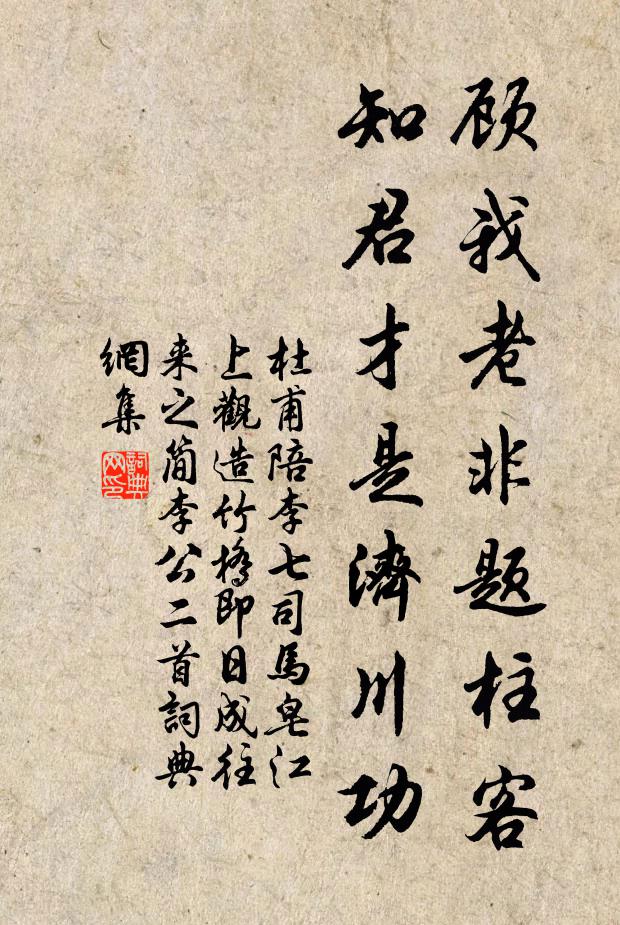 顾我老非题柱客
知君才是濟川功
杜甫陪李七司馬皂江
上觀造竹橋即日成往
来之简李公二首詞典
網集
詞典網印